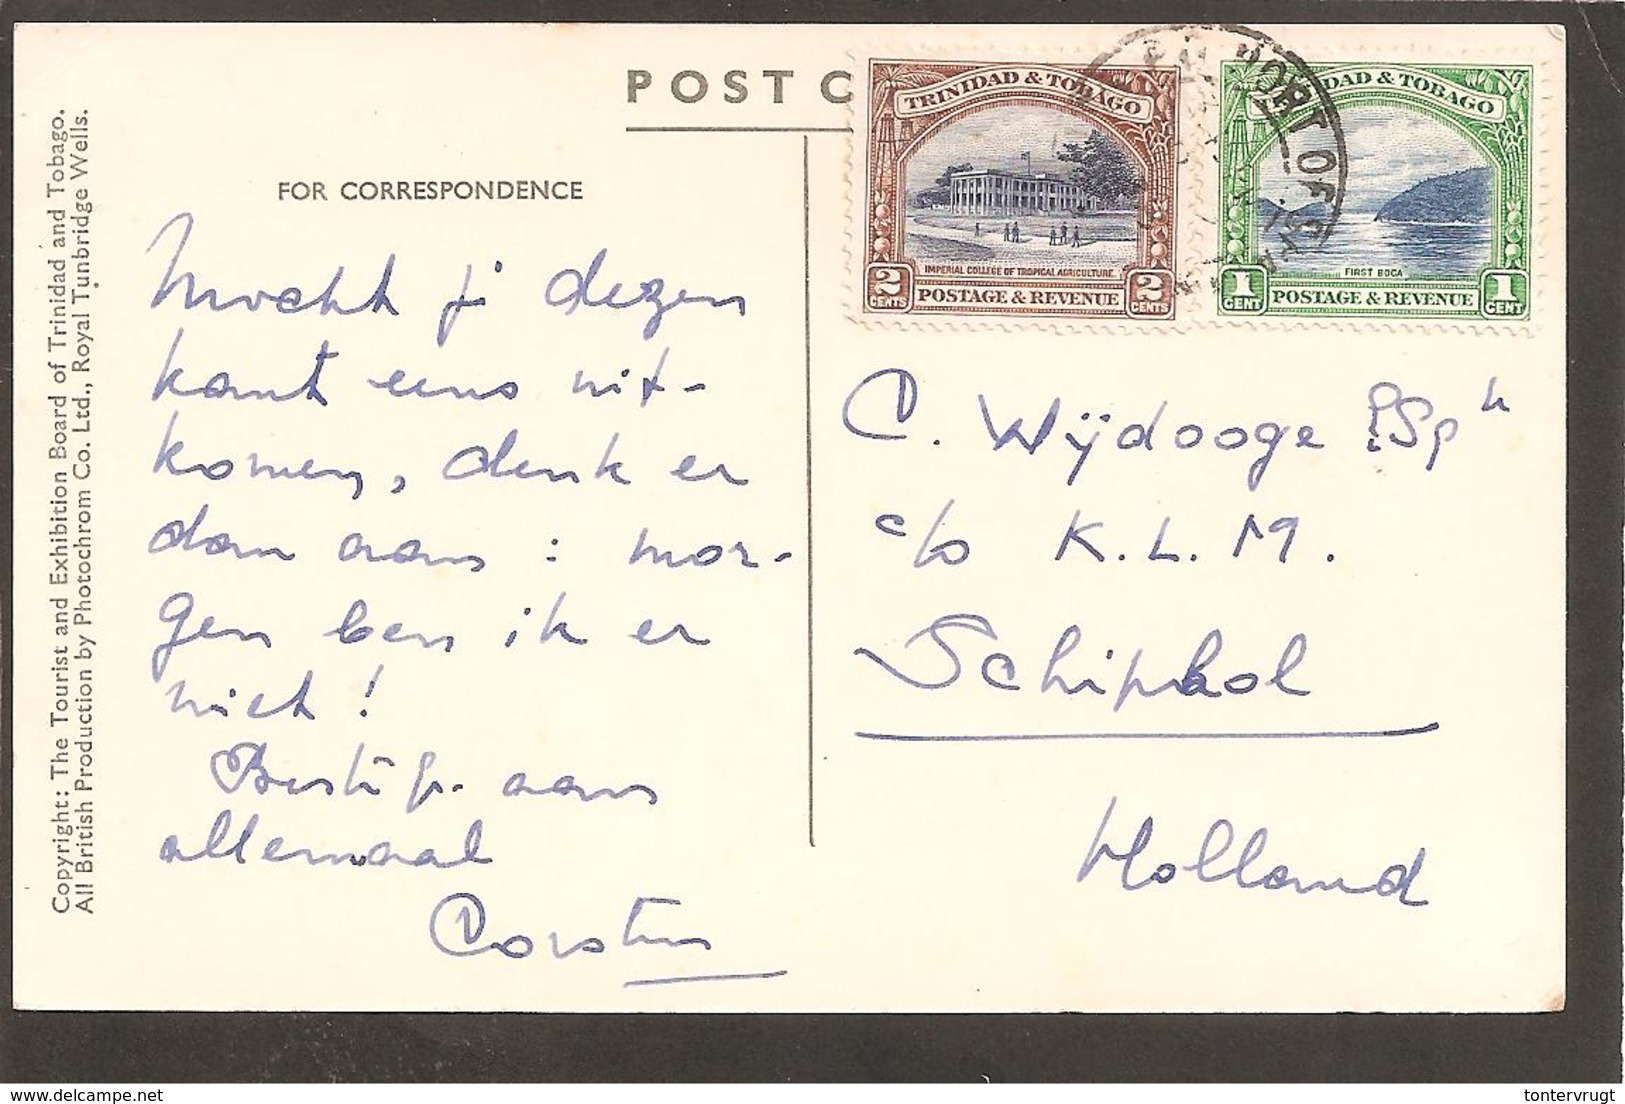 POST C
FOR CORRESPONDENCE
Mocht je dezen
kant eens uit-
komen, denk er
dan aan: mor-
gen ben ik er
niet!
aan
allemaal
TRINIDAD & TOBAGO
IMPERIAL COLLEGE OF TROPICAL AGRICULTURE.
2 CENTS POSTAGE & REVENUE 2 CENTS
DAD & TOBAGO
FIRST BOCA
1 CENT POSTAGE & REVENUE 1 CENT
PORT OF
C. Wijdooge
c/o K.L.M.
Schiphol
Holland
Copyright: The Tourist and Exhibition Board of Trinidad and Tobago.
All British Production by Photochrom Co. Ltd., Royal Tunbridge Wells.
delcampe.net
tontervrugt